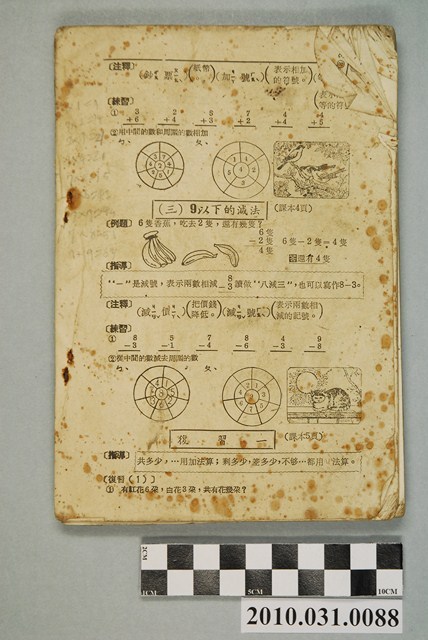 〔注釋〕 (鈔票)(紙幣。)(加號)(表示相加的符號。)
(表示 等的符
〔練習〕
① 3 +6 2 +4 5 +3 7 +2 4 +4 4 +5
②用中間的數和周圍的數相加
ㄅ、 ㄆ、
(課本4頁)
(三) 9以下的減法
〔例題〕 6隻香蕉,吃去2隻,還有幾隻?
6隻
－ 2隻 6隻－2隻＝4隻
4隻 還有4隻
〔指導〕
"－"是減號,表示兩數相減 8 －3 讀做"八減三",也可以寫作8－3。
〔注釋〕 (減價)(把價錢降低。)(減號)(表示兩數相減的記號。)
〔練習〕
① 8 －3 5 －1 7 －4 8 －6 4 －3 9 －8
②從中間的數減去周圍的數
ㄅ、 ㄆ、
(課本5頁)
複習一
〔指導〕 共多少,…用加法算;剩多少,差多少,不够…都用 法算。
〔復習(1)〕
① 有紅花6朵,白花3朵,共有花幾朵?
2CM
1CM 5CM 10CM
2010.031.0088